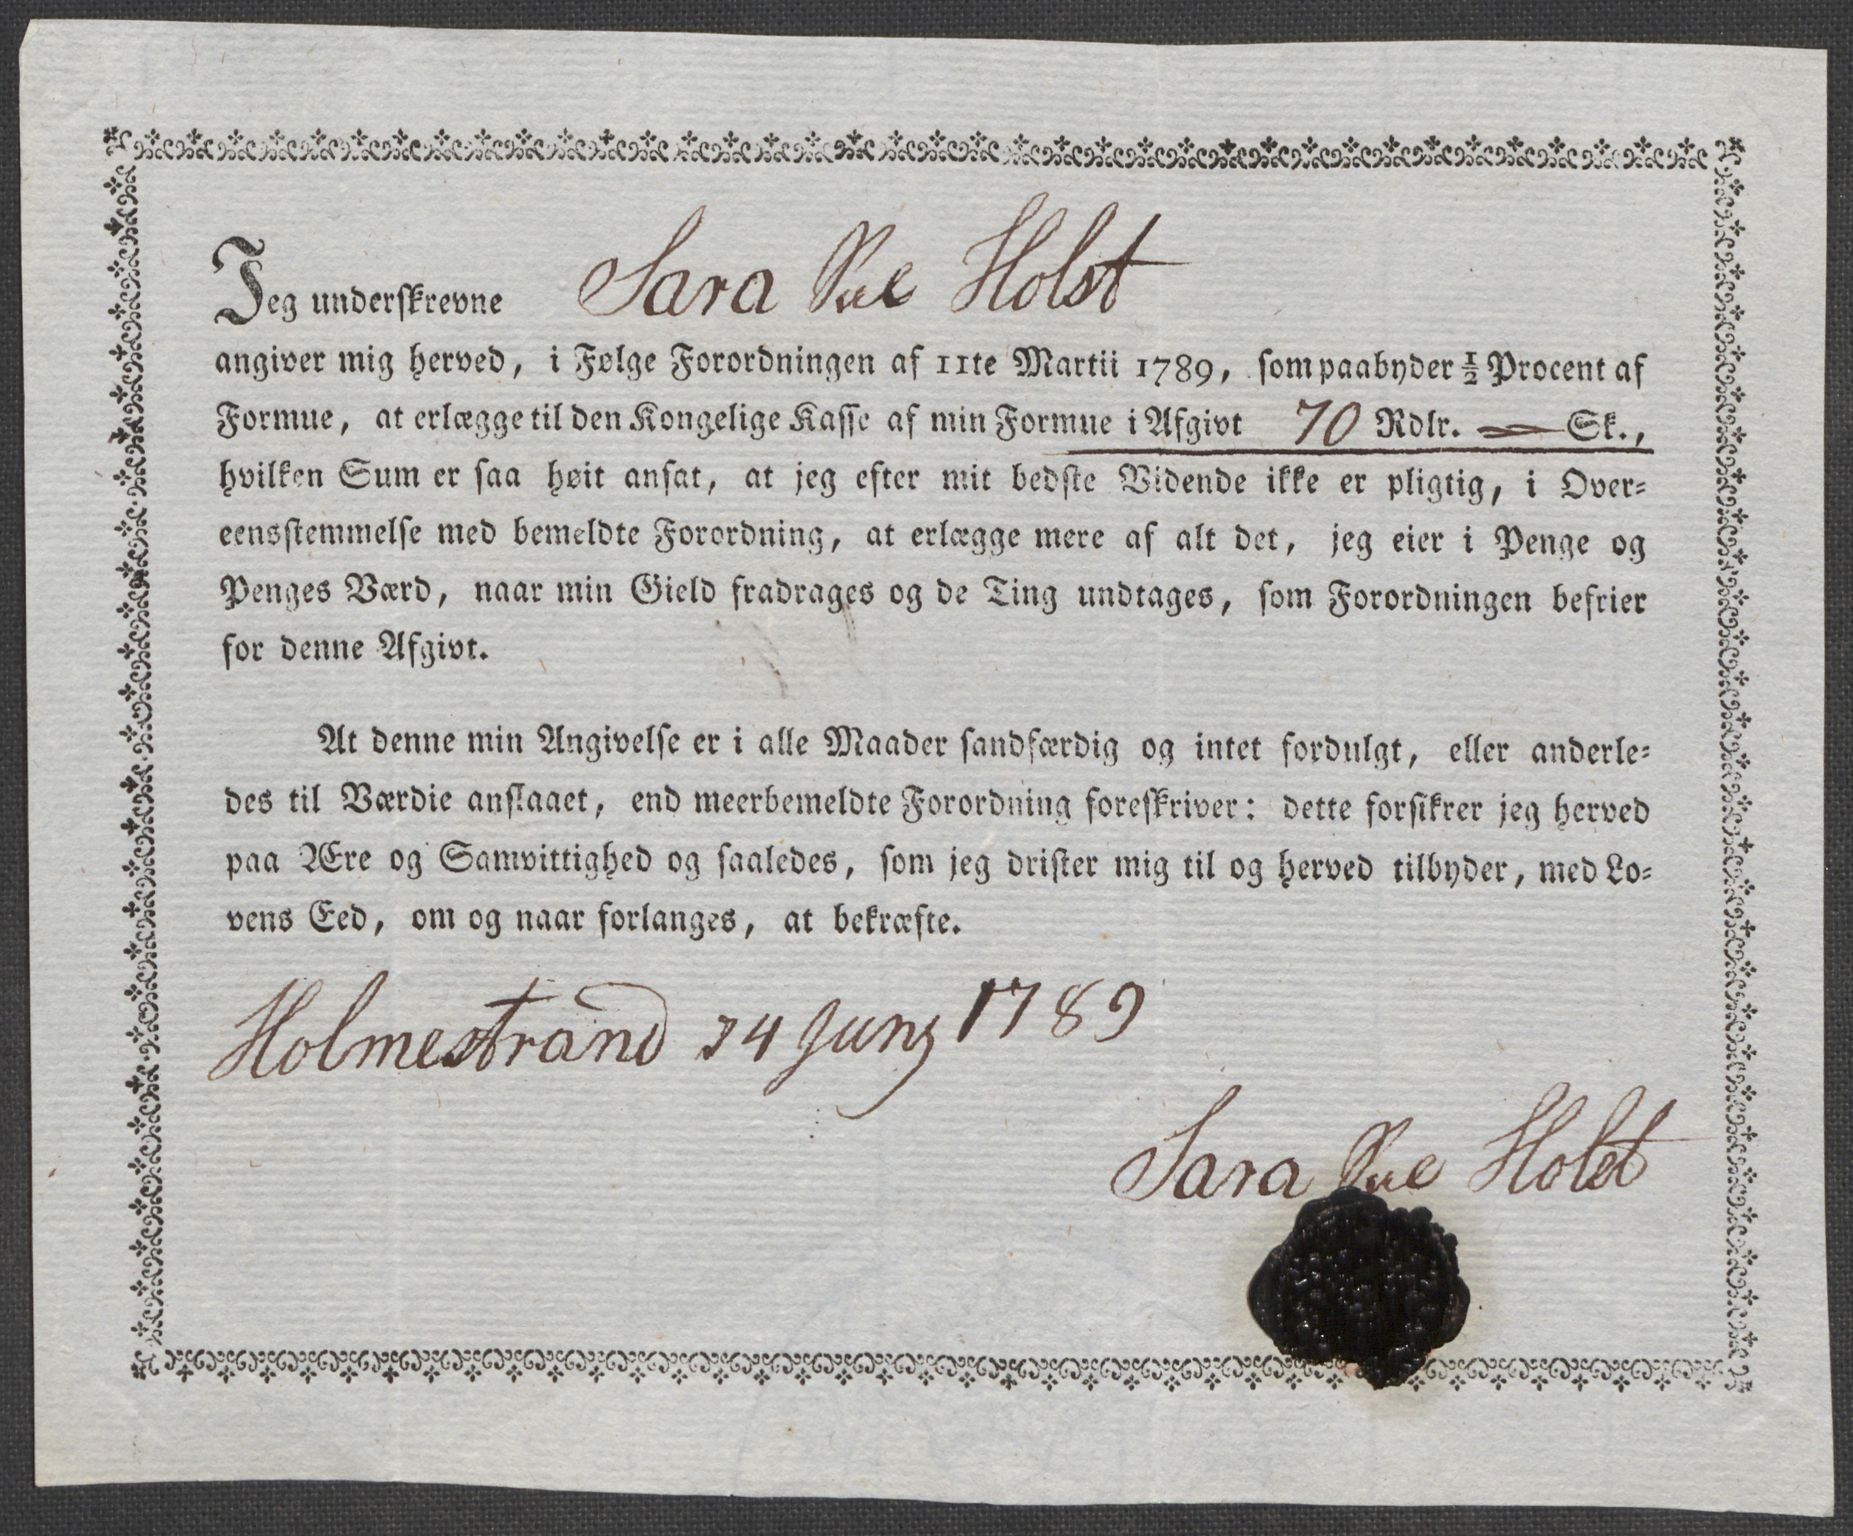 Jeg underskrevne Sara Sal Holst
angiver mig herved, i Følge Forordningen af 11te Martii 1789, som paabyder ½ Procent af
Formue, at erlægge til den Kongelige Kasse af min Formue i Afgivt 70 Rdlr. — Sk.,
hvilken Sum er saa høit ansat, at jeg efter mit bedste Vidende ikke er pligtig, i Over-
eensstemmelse med bemeldte Forordning, at erlægge mere af alt det, jeg eier i Penge og
Penges Værd, naar min Gield fradrages og de Ting undtages, som Forordningen befrier
for denne Afgivt.
At denne min Angivelse er i alle Maader sandfærdig og intet fordulgt, eller anderle-
des til Værdie anslaaet, end meerbemeldte Forordning foreskriver: dette forsikrer jeg herved
paa Ære og Samvittighed og saaledes, som jeg drister mig til og herved tilbyder, med Lo-
vens Eed, om og naar forlanges, at bekræfte.
Holmestrand 24 Junj 1789
Sara Holst